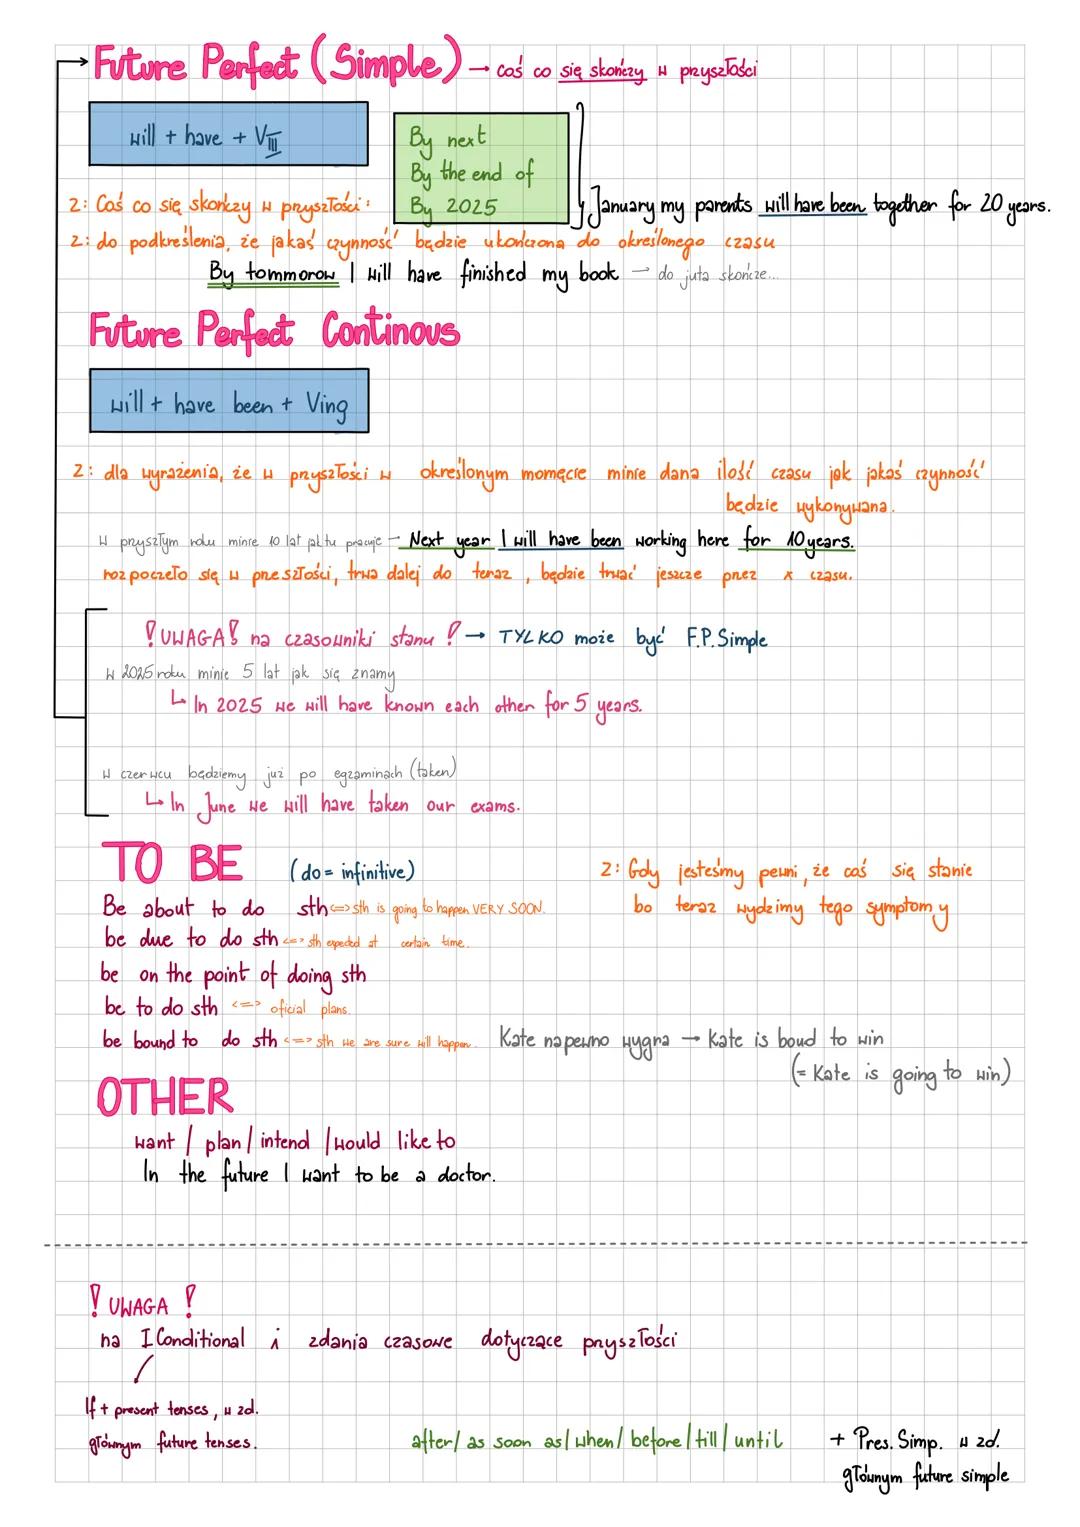 Future Perfect (Simple) → coś co się skończy w przyszłości
will + have + VIII
By next
By the end of
By 2025
Z: Coś co się skończy w przyszłości:
January my parents will have been together for 20 years.
Z: do podkreślenia, że jakaś czynność będzie ukończona do określonego czasu
By tommorow I will have finished my book → do juta skończe...
Future Perfect Continous
will + have been + Ving
Z: dla wyrażenia, że w przyszłości w określonym momęcie minie dana ilość czasu jak jakaś czynność
będzie wykonywana.
w przyszłym roku minie 10 lat jak tu pracuje → Next year I will have been working here for 10 years.
rozpoczeło się w przeszłości, trwa dalej do teraz, będzie trwać jeszcze przez x czasu.
!UWAGA! na czasowniki stanu! → TYLKO może być F.P. Simple
w 2025 roku minie 5 lat jak się znamy
↳ In 2025 we will have known each other for 5 years.
w czerwcu będziemy już po egzaminach (taken)
↳ In June we will have taken our exams.
TO BE (do = infinitive)
Z: Gdy jesteśmy pewni, że coś się stanie
bo teraz wydzimy tego symptomy
Be about to do sth <=> sth is going to happen VERY SOON.
be due to do sth <=> sth expected at certain time.
be on the point of doing sth
be to do sth <=> oficial plans.
be bound to do sth <=> sth we are sure will happen.
Kate napewno wygra → Kate is boud to win
(= Kate is going to win)
OTHER
want / plan / intend / would like to
In the future I want to be a doctor.
! UWAGA !
na I Conditional i zdania czasowe dotyczące przyszłości
If + present tenses, w zd.
głównym future tenses.
after / as soon as / when / before / till / until
+ Pres. Simp. w zd.
głównym future simple